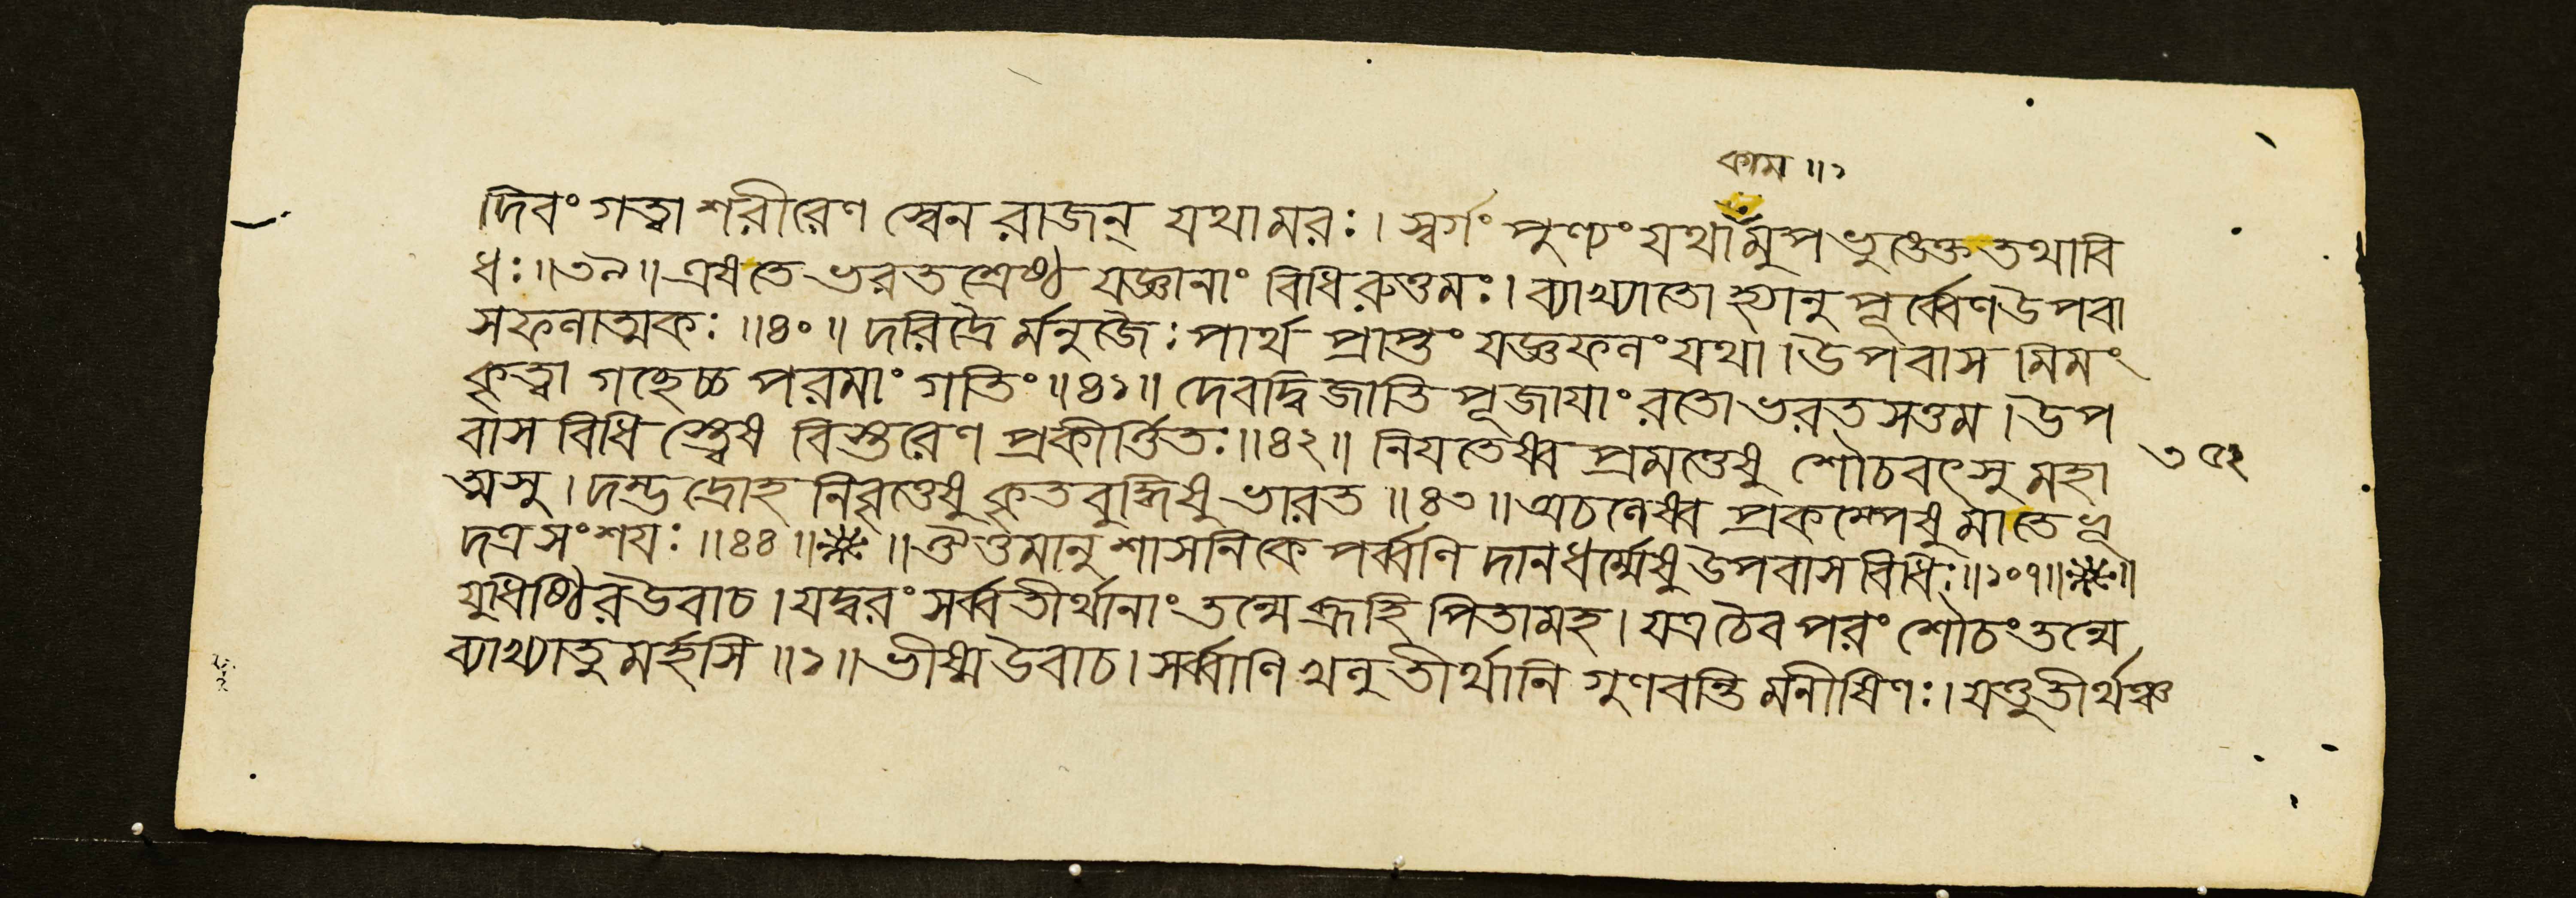 কাম ॥১
দিবং গত্বা শরীরেণ স্বেন রাজন্ যথামরঃ। স্বর্গং পুণ্যং যথামুপভুঙেক্ত তথাবি
ধঃ॥৩৯॥ এষতে ভরতশ্রেষ্ঠ যজ্ঞানাং বিধিরুত্তমঃ। ব্যাখ্যাতো হ্যানুপূর্ব্বেণ উপবা
সফলাত্মকঃ ॥৪০॥ দরিদ্রৈর্মনুজৈঃ পার্থ প্রাপ্তং যজ্ঞফলং যথা। উপবাসমিমং
কৃত্বা গচ্ছেচ্চ পরমাং গতিং॥৪১॥ দেবদ্বিজাতিপূজাযাং রতো ভরতসত্তম। উপ
বাসবিধিস্ত্বেষ বিস্তরেণ প্রকীর্ত্তিতঃ॥৪২॥ নিযতেষ্বপ্রমত্তেষু শৌচবৎসু মহা
ত্মসু। দম্ভদ্রোহনিবৃত্তেষু কৃতবুদ্ধিষু ভারত ॥৪৩॥ অচলেষ্বপ্রকম্পেষু মাতে ভূ
দত্র সংশযঃ ॥৪৪॥ ॥ঔত্তমানুশাসনিকে পর্ব্বণি দানধর্ম্মেষু উপবাসবিধিঃ॥১০৭॥ ॥
যুধিষ্ঠির উবাচ। যদ্বরং সর্ব্বতীর্থানাং তন্মে ব্রূহি পিতামহ। যত্র চৈব পরং শৌচং তন্মে
ব্যাখ্যাতুমর্হসি ॥১॥ ভীষ্ম উবাচ। সর্ব্বাণি খলু তীর্থানি গুণবন্তি মনীষিণঃ। যত্তু তীর্থঞ্চ
৩৫২